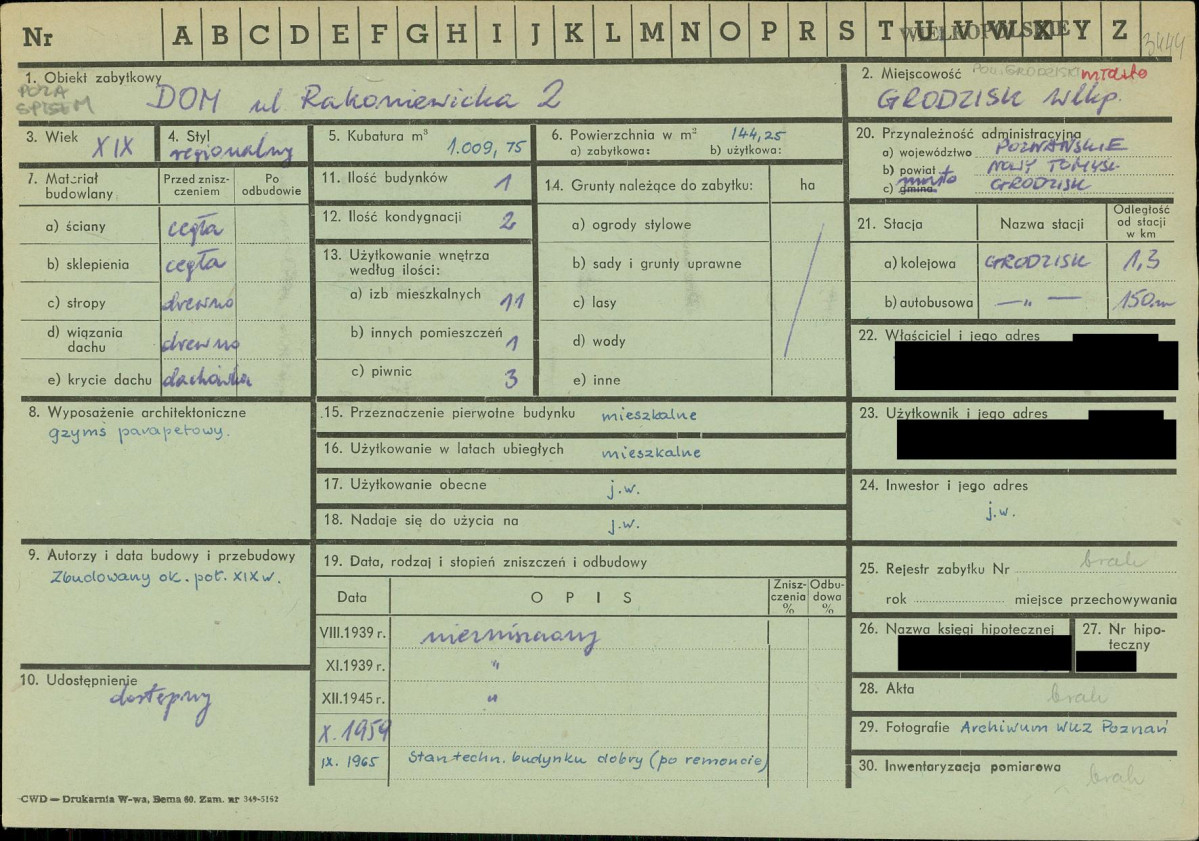 Nr A B C D E F G H I J K L M N O P R S T U V W X Y Z
WIELKOPOLSKIE
3444
1. Obiekt zabytkowy
POZA SPISEM
DOM ul Rakoniewicka 2
2. Miejscowość POW. GRODZISKI miasto
GRODZISK Wlkp.
3. Wiek XIX
4. Styl regionalny
5. Kubatura m³ 1.009,75
6. Powierzchnia w m² 144,25
a) zabytkowa: b) użytkowa:
20. Przynależność administracyjna
a) województwo POZNAŃSKIE
b) powiat NOWY TOMYŚL
c) gmina miasto GRODZISK
7. Materiał budowlany
Przed zniszczeniem
Po odbudowie
a) ściany cegła
b) sklepienia cegła
c) stropy drewno
d) wiązania dachu drewno
e) krycie dachu dachówka
11. Ilość budynków 1
12. Ilość kondygnacji 2
13. Użytkowanie wnętrza według ilości:
a) izb mieszkalnych 11
b) innych pomieszczeń 1
c) piwnic 3
14. Grunty należące do zabytku: ha
a) ogrody stylowe
b) sady i grunty uprawne
c) lasy
d) wody
e) inne
21. Stacja Nazwa stacji Odległość od stacji w km
a) kolejowa GRODZISK 1,3
b) autobusowa —„— 150m
22. Właściciel i jego adres
8. Wyposażenie architektoniczne
gzymś parapetowy.
15. Przeznaczenie pierwotne budynku mieszkalne
16. Użytkowanie w latach ubiegłych mieszkalne
17. Użytkowanie obecne j.w.
18. Nadaje się do użycia na j.w.
23. Użytkownik i jego adres
24. Inwestor i jego adres
j.w.
9. Autorzy i data budowy i przebudowy
Zbudowany ok. poł. XIX w.
10. Udostępnienie
dostępny
19. Data, rodzaj i stopień zniszczeń i odbudowy
Data OPIS Zniszczenia % Odbudowa %
VIII.1939 r. niezniszczony
XI.1939 r. „
XII.1945 r. „
X. 1959
IX. 1965 Stan techn. budynku dobry (po remoncie)
25. Rejestr zabytku Nr brak
rok miejsce przechowywania
26. Nazwa księgi hipotecznej
27. Nr hipoteczny
28. Akta brak
29. Fotografie Archiwum WKZ Poznań
30. Inwentaryzacja pomiarowa brak
CWD — Drukarnia W-wa, Bema 60. Zam. nr 349-5162